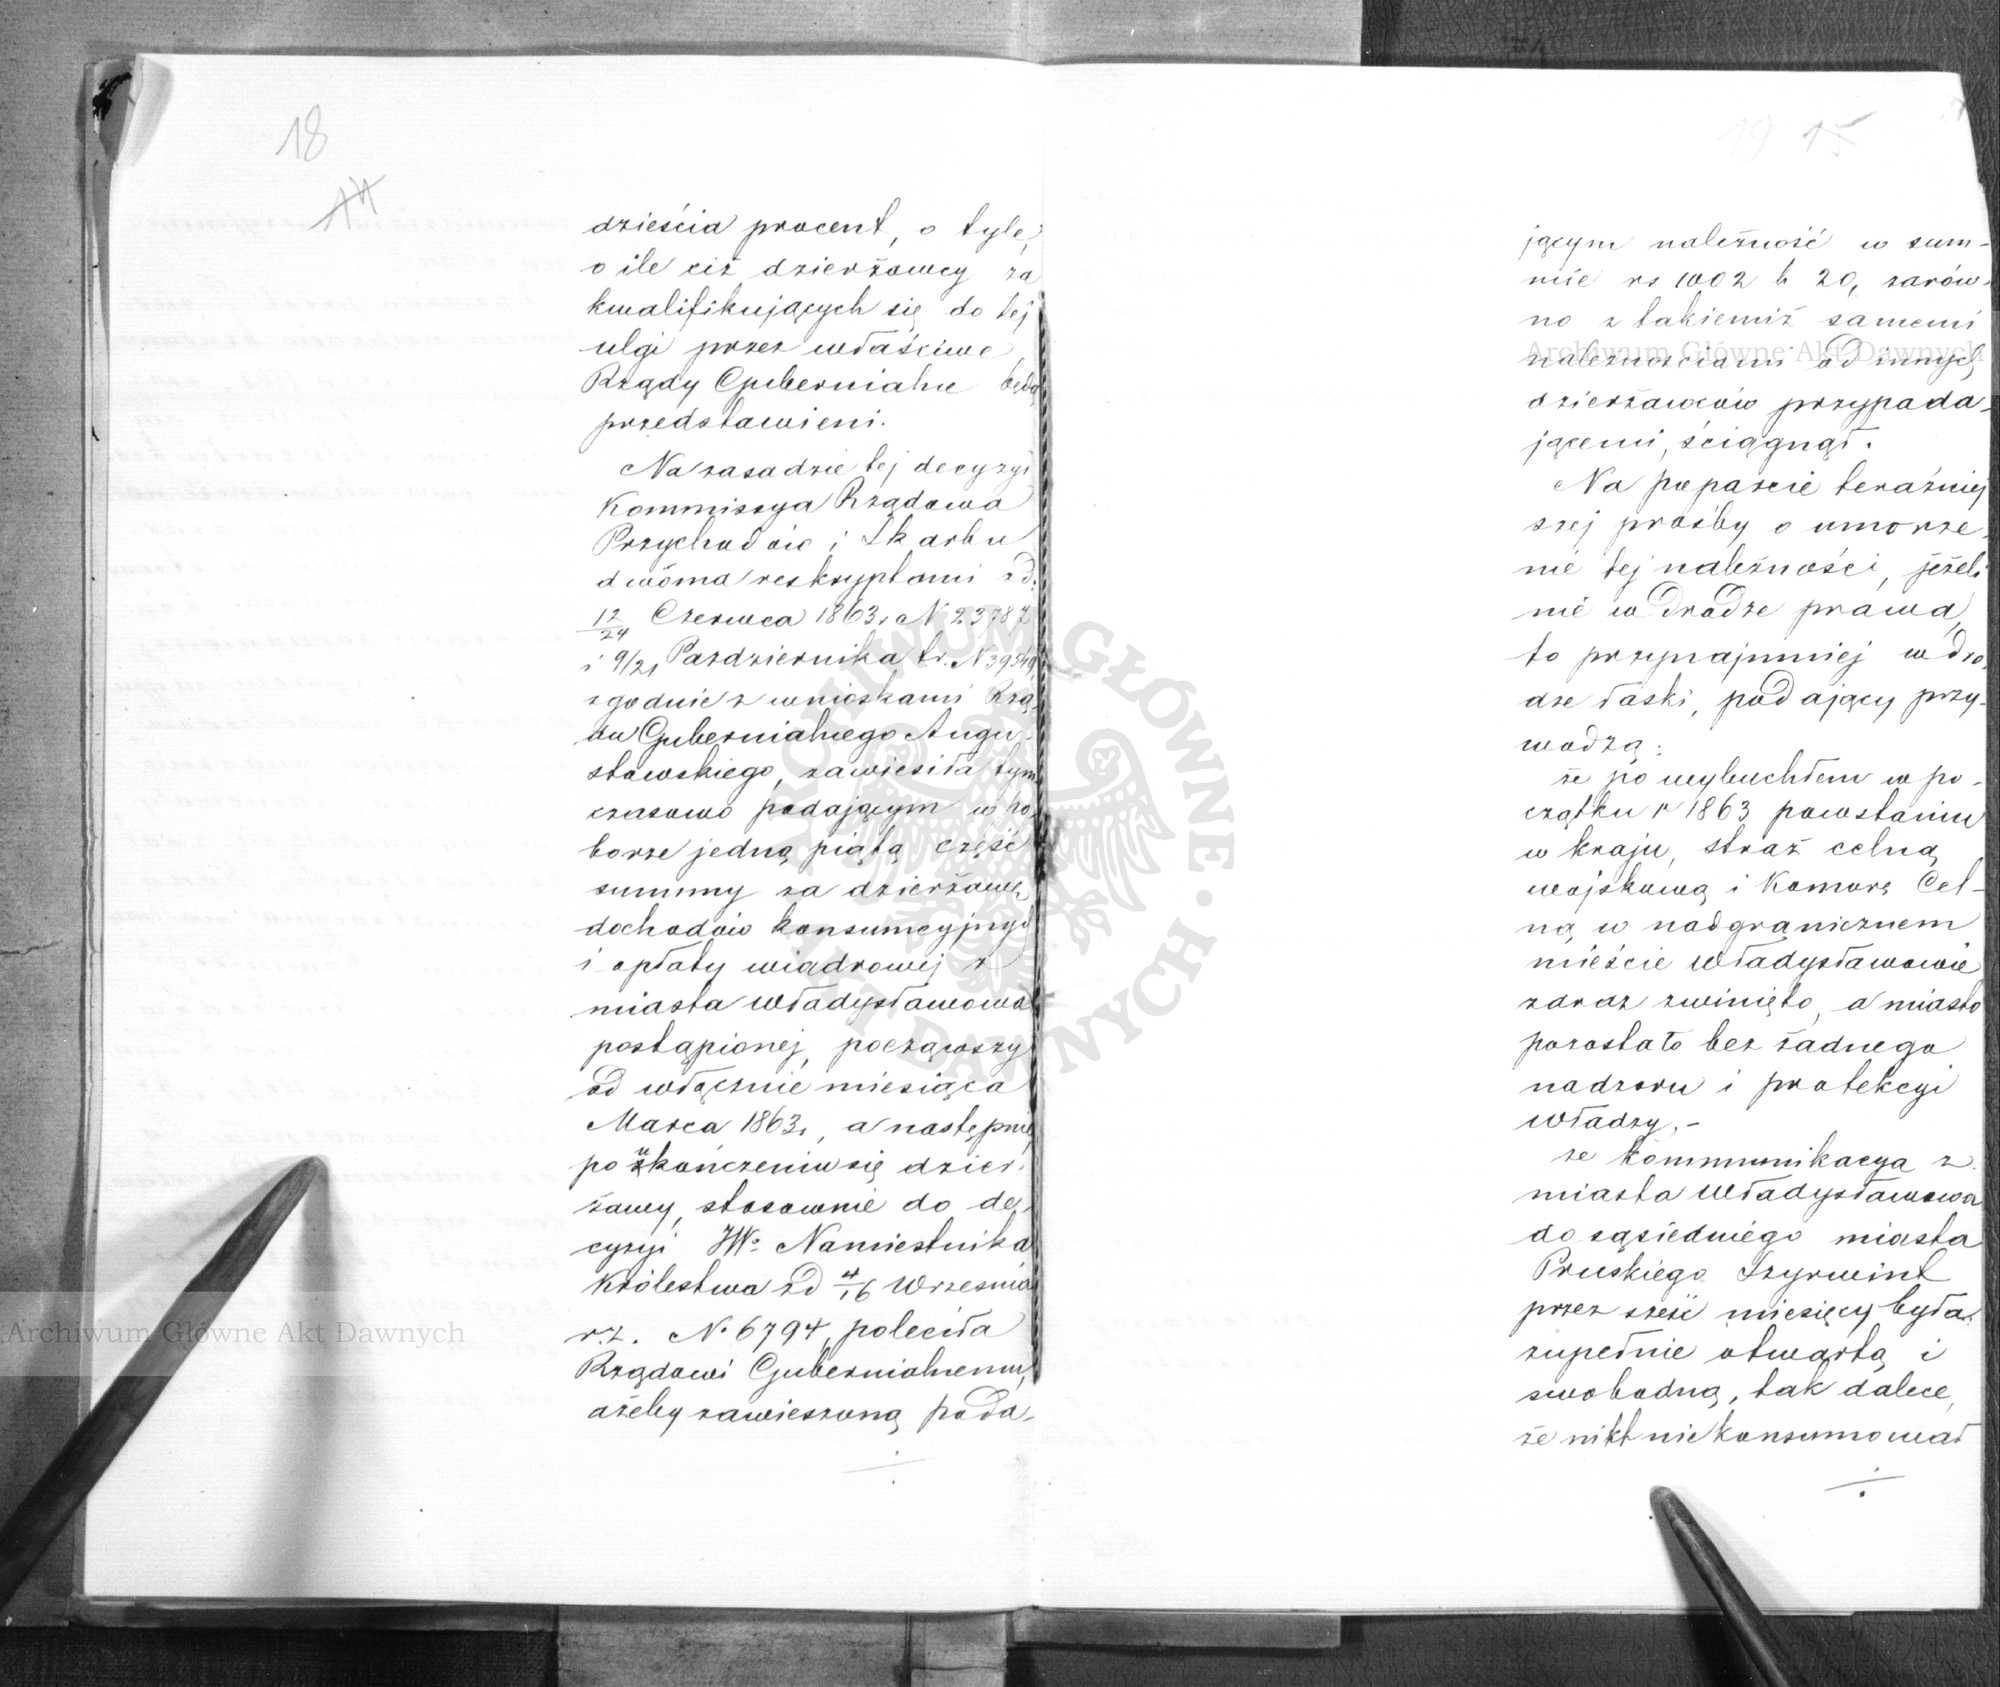 18
14
dzieścia procent, o tyle,
o ile ciż dzierżawcy za
kwalifikujących się do tej
ulgi przez właściwe
Rządy Gubernialne będą
przedstawieni.
Na zasadzie tej decyzyi
Kommissya Rządowa
Przychodów i Skarbu
dwóma reskryptami z d.
12/24 Czerwca 1863 r. N 23787
i 9/21 Października t.r. N 39549
zgodnie z wnioskami Rzą-
du Gubernialnego Augu-
stowskiego, zawiesiła tym
czasowo podającym w po-
borze jedną piątą część
summy za dzierżawę
dochodów konsumcyjnych
i opłaty wiadrowej z
miasta Władysławowa
postąpionej, począwszy
od włącznie miesiąca
Marca 1863 r, a następnie
po ukończeniu się dzier-
żawy, stosownie do de-
cyzyi JWo Namiestnika
Królestwa z d 4/16 Września
r.z. No 6794, poleciła
Rządowi Gubernialnemu,
ażeby zawieszoną poda-
19 15
jącym należność w sum-
mie rs 1002 k 20, zarów-
no z takiemiż samemi
należnościami od innych
dzierżawców przypada-
jącemi, ściągnął.
Na poparcie teraźniej
szej prośby o umorze-
nie tej należności, jeżeli
nie w drodze prawa,
to przynajmniej w dro-
dze łaski, podający przy-
wodzą:
że po wybuchłem w po-
czątku r 1863 powstaniu
w kraju, straż celną
wojskową i Komorę Cel-
ną w nadgranicznem
mieście Władysławowie
zaraz zwinięto, a miasto
pozostało bez żadnego
nadzoru i protekcyi
władzy, -
że kommunikacya z
miasta Władysławowa
do sąsiedniego miasta
Pruskiego Szyrwint
przez sześć miesięcy była
zupełnie otwartą i
swobodną, tak dalece,
że nikt nie konsumował
Archiwum Główne Akt Dawnych
Archiwum Główne Akt Dawnych
ARCHIWUM GŁÓWNE · AKT DAWNYCH ·